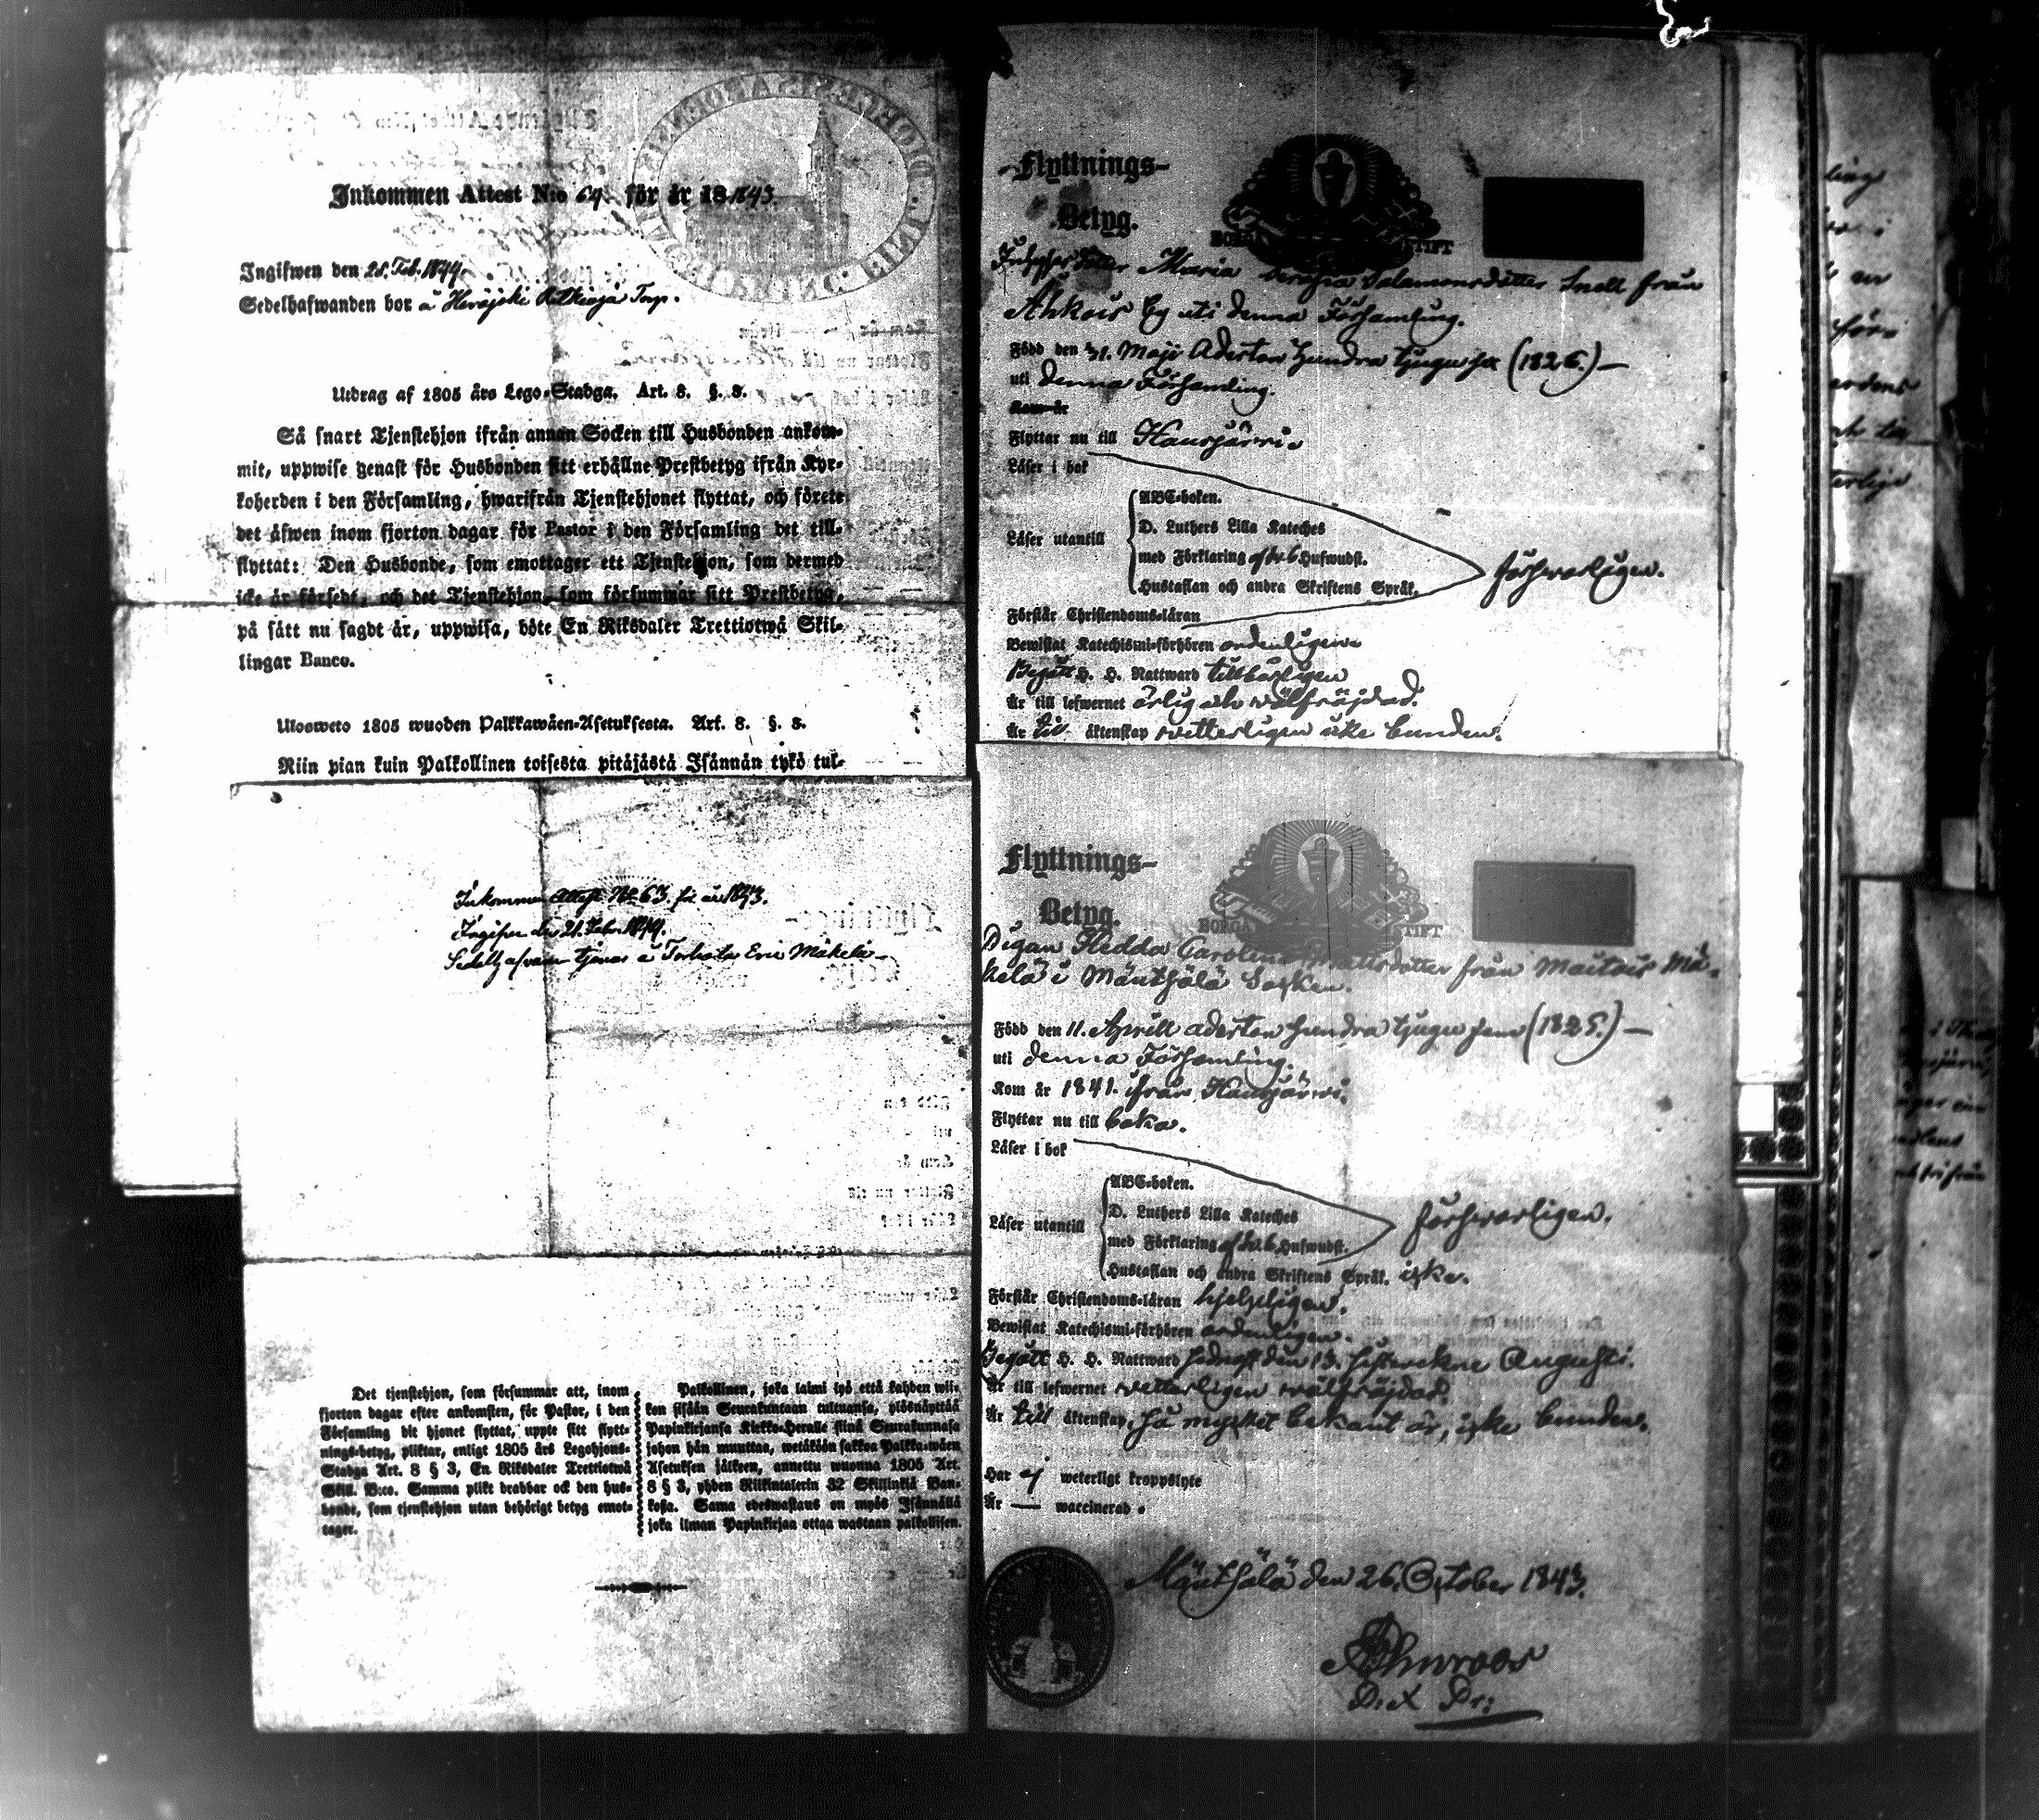 Inkommen Attest N:o 64 för år 18 1843.
Ingifwen den 21. Feb. 1844.
Sedelhafwanden bor å Herajoki Torp.
Utdrag af 1805 års Lego-Stadga. Art. 8. §. 3.
Så snart Tjenstehjon ifrån annan Socken till Husbonden ankom-
mit, uppwise genast för Husbonden sitt erhållne Prestbetyg ifrån Kyr-
koherden i den Församling, hwarifrån Tjenstehjonet flyttat, och förete
det äfwen inom fjorton dagar för Pastor i den Församling det till-
flyttat: Den Husbonde, som emottager ett Tjenstehjon, som dermed
icke är försedt, och det Tjenstehjon, som försummar sitt Prestbetyg,
på sätt nu sagdt är, uppwisa, böte En Riksdaler Trettiotwå Skil-
lingar Banco.
Ulosweto 1805 wuoden Palkkawäen-Asetuksesta. Art. 8. §. 3.
Niin pian kuin Palkollinen toisesta pitäjästä Isännän tykö tul-
Inkommen Attest No 63. för år 1843.
Ingifven den 21. Febr. 1844.
tjenar å Eric Mäkelä
Det tjenstehjon, som försummar att, inom
fjorton dagar efter ankomsten, för Pastor, i den
Församling dit hjonet flyttat, uppte sitt flytt-
nings-betyg, pliktar, enligt 1805 års Legohjons-
Stadga Art. 8 § 3, En Riksdaler Trettiotwå
Skill. B:co. Samma plikt drabbar ock den hus-
bonde, som tjenstehjon utan behörigt betyg emot-
tager.
Palkollinen, joka laimi lyö että kahden wii-
kon sisään Seurakuntaan tultuansa, ylösnäyttää
Papinkirjansa Kirkko-Herralle siinä Seurakunnasa
johon hän muuttaa, wetäköön sakkoa Palkka-wäen
Asetuksen jälkeen, annettu wuonna 1805 Art.
8 § 3, yhden Riikintalerin 32 Skillinkiä Ban-
kosa. Sama edeswastaus on myös Isännällä
joka ilman Papinkirjaa ottaa wastaan palkollisen.
Flyttnings-
Betyg.
BORGÅ STIFT
Maria Serafia Salamonsdotter Snell från
Ahkois by uti denna Församling.
Född den 31. Maji Aderton hundra tjugu sex (1826.)
uti denna Församling.
Kom år
Flyttar nu till Hausjärvi
Läser i bok
Läser utantill
ABC-boken.
D. Luthers Lilla Kateches
med Förklaring af de 6 Hufwudst.
Hustaflan och andra Skriftens Språk.
försvarligen.
Förstår Christendoms-läran
Bewistat Katechismi-förhören ordentligen
Begått H. H. Nattward tillbörligen
Är till lefwernet ärlig och välfräjdad.
Är till äktenskap vetterligen icke bunden.
Flyttnings-
Betyg.
BORGÅ STIFT
Pigan Hedda Carolina Mattsdotter från Maitois Mä-
kelä i Mäntsälä Socken.
Född den 11. Aprill aderton hundra tjugu fem (1825.)
uti denna Församling.
Kom år 1841. ifrån Hausjärvi.
Flyttar nu till baka.
Läser i bok
Läser utantill
ABC-boken.
D. Luthers Lilla Kateches
med Förklaring af de 6 Hufwudst.
Hustaflan och andra Skriftens Språk. icke.
försvarligen.
Förstår Christendoms-läran hjelpligen.
Bewistat Katechismi-förhören ordentligen.
Begått H. H. Nattward sednast den 13. sistvekne Augusti.
Är till lefwernet vetterligen välfräjdad.
Är till äktenskap, så mycket bekant är, icke bunden.
Har ej weterligt kroppslyte
Är — waccinerad.
Mäntsälä den 26. October 1843.